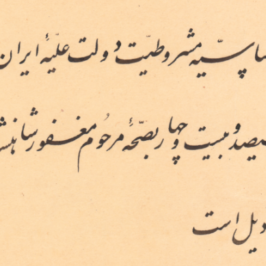 اساسیه مشروطیت دولت علیّهٔ ایران
یصد و بیست و چهار بصحّهٔ مرحوم مغفور شاهنش
ذیل است